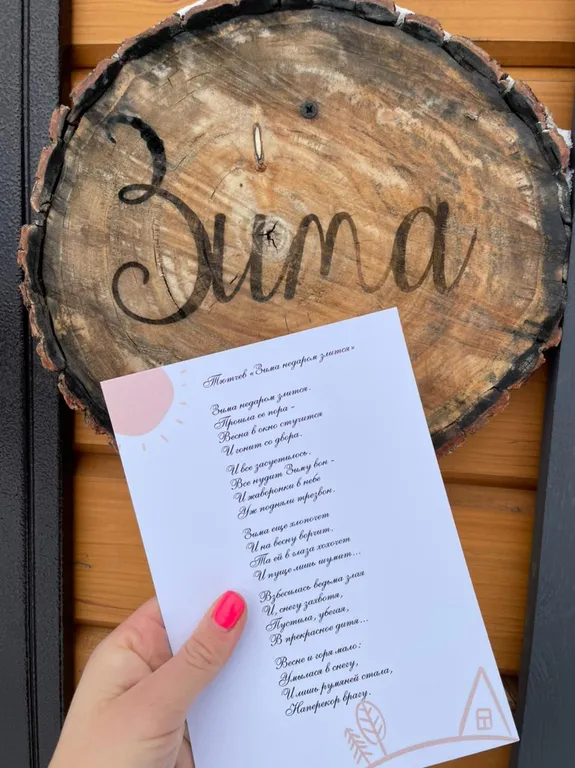 Зима
Тютчев «Зима недаром злится»
Зима недаром злится.
Прошла ее пора -
Весна в окно стучится
И гонит со двора.
И все засуетилось.
Все нудит Зиму вон -
И жаворонки в небе
Уж подняли трезвон.
Зима еще хлопочет
И на весну ворчит.
Та ей в глаза хохочет
И пуще лишь шумит...
Взбесилась ведьма злая
И, снегу захватя,
Пустила, убегая,
В прекрасное дитя...
Весне и горя мало:
Умылася в снегу,
И лишь румяней стала,
Наперекор врагу.